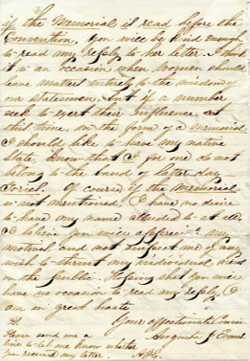 if the Memorial is read before the
Convention, you will be kind enough
to read my reply to her letter. I think
it is an occasion when women should
leave matters entirely to the wisdom of
our statesmen, but if a number
seek to exert their influence at
this time, in the form of a memorial
I should like to have my native
State, know that I for one do not
belong to the band of latter day
Tories. Of course if the Memorial
is not mentioned. I have no desire
to have my name attended to at all
I believe you will appreciate my
motives and not suspect me of any
wish to thrust my individual
the public. Hoping that you will
have no occasion to read my reply I
am in great haste
Your affectionate
Augusta J. Evans
Please send me a
line to let me know whether
you received my letter.